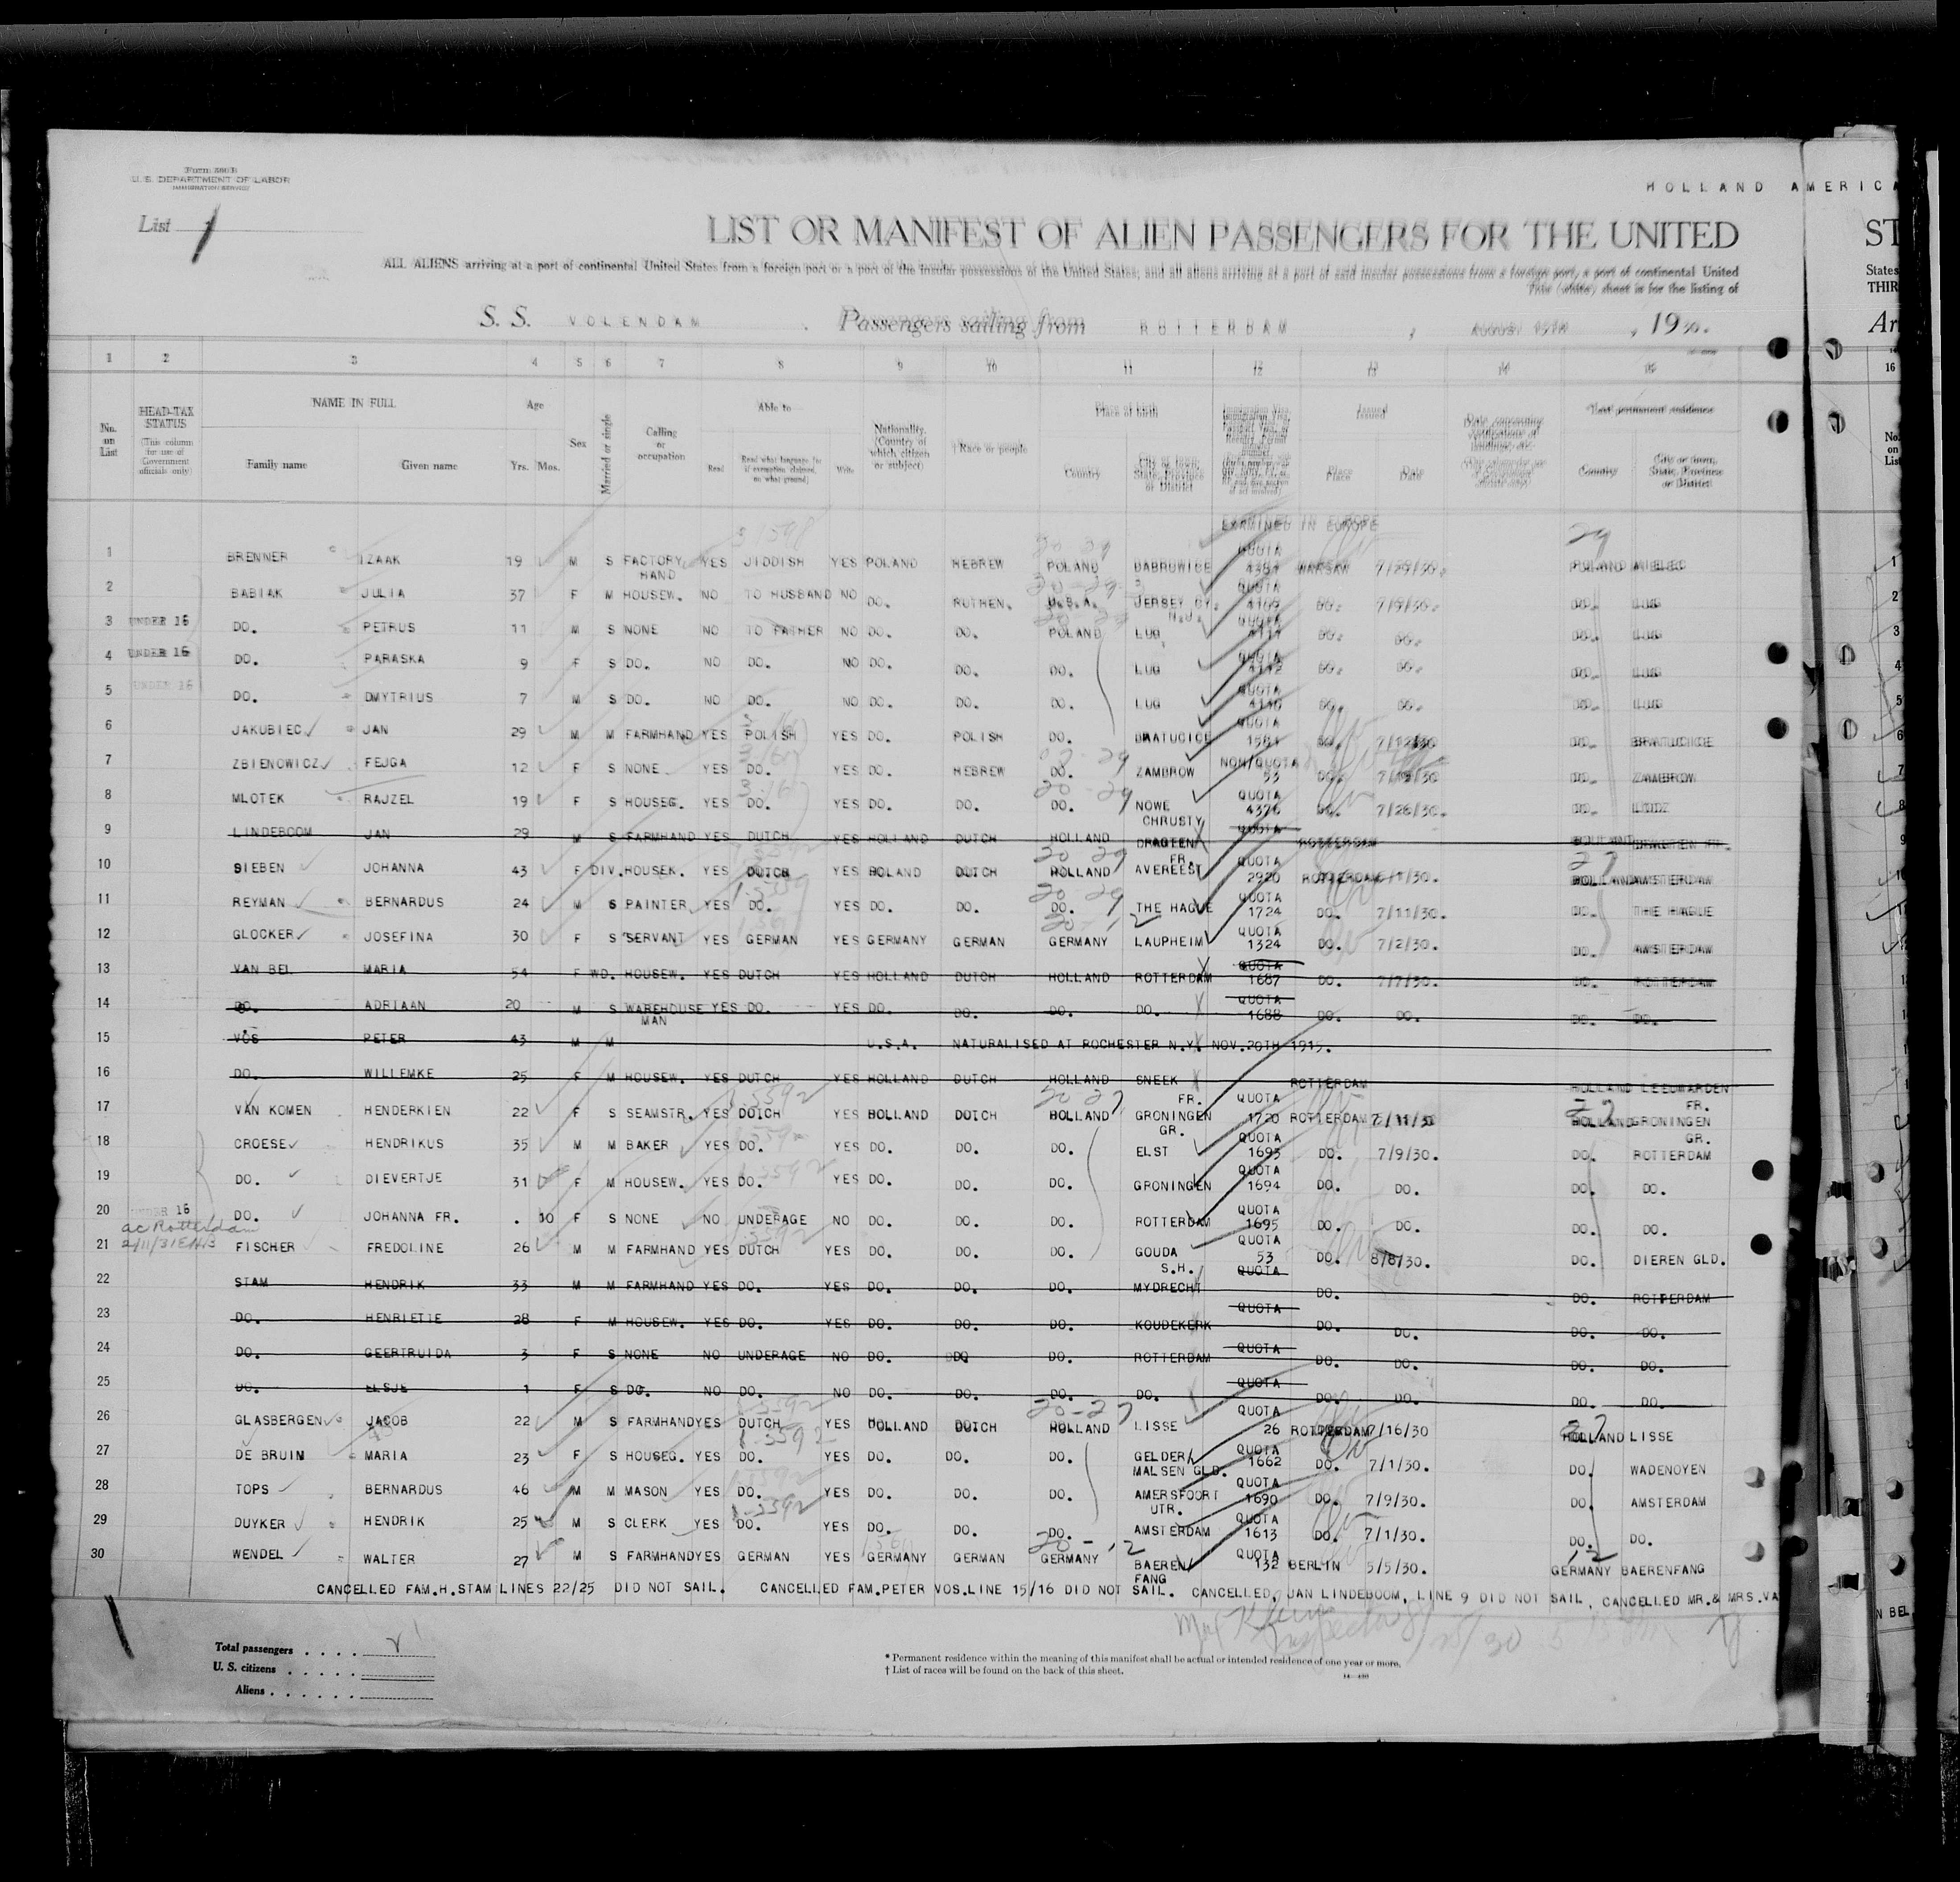 Form 500 B
U. S. DEPARTMENT OF LABOR
IMMIGRATION SERVICE
HOLLAND AMERICA
List 1
LIST OR MANIFEST OF ALIEN PASSENGERS FOR THE UNITED ST
ALL ALIENS arriving at a port of continental United States from a foreign port or a port of the insular possessions of the United States, and all aliens arriving at a port of said insular possessions from a foreign port, a port of continental United States
This (white) sheet is for the listing of THIR
S. S. VOLENDAM Passengers sailing from ROTTERDAM , AUGUST 19 30.
1 2 3 4 5 6 7 8 9 10 11 12 13 14 15 16
No. on List
HEAD-TAX STATUS (This column for use of Government officials only)
NAME IN FULL Family name Given name
Age Yrs. Mos.
Sex
Married or single
Calling or occupation
Able to Read Read what language [or if exemption claimed, on what ground] Write
Nationality. (Country of which citizen or subject)
† Race or people
Place of birth Country City or town, State, Province or District
Issued Place Date
*Last permanent residence Country City or town, State, Province or District
No. on List
EXAMINED IN EUROPE
1 BRENNER IZAAK 19 M S FACTORY HAND YES JIDDISH YES POLAND HEBREW POLAND DABROWICE QUOTA 4384 WARSAW 7/29/30. POLAND MIELEC
2 BABIAK JULIA 37 F M HOUSEW. NO TO HUSBAND NO DO. RUTHEN. U.S.A. JERSEY CY. N.J. QUOTA 4109 DO. 7/9/30. DO. LUG
3 UNDER 16 DO. PETRUS 11 M S NONE NO TO FATHER NO DO. DO. POLAND LUG QUOTA 4111 DO. DO. DO. LUG
4 UNDER 16 DO. PARASKA 9 F S DO. NO DO. NO DO. DO. DO. LUG QUOTA 4112 DO. DO. DO. LUG
5 UNDER 16 DO. DMYTRIUS 7 M S DO. NO DO. NO DO. DO. DO. LUG QUOTA 4110 DO. DO. DO. LUG
6 JAKUBIEC JAN 29 M M FARMHAND YES POLISH YES DO. POLISH DO. BRATUCICE QUOTA 1581 DO. 7/12/30 DO. BRATUCICE
7 ZBIENOWICZ FEJGA 12 F S NONE YES DO. YES DO. HEBREW DO. ZAMBROW NON/QUOTA 53 DO. 7/15/30 DO. ZAMBROW
8 MLOTEK RAJZEL 19 F S HOUSEG. YES DO. YES DO. DO. DO. NOWE CHRUSTY QUOTA 4376 DO. 7/26/30. DO. LODZ
9 LINDEBOOM JAN 29 M S FARMHAND YES DUTCH YES HOLLAND DUTCH HOLLAND DRAGTEN FR. QUOTA ROTTERDAM HOLLAND DRAGTEN FR.
10 SIEBEN JOHANNA 43 F DIV. HOUSEK. YES DUTCH YES HOLAND DUTCH HOLLAND AVEREEST QUOTA 2920 ROTTERDAM /1/30. HOLLAND AMSTERDAM
11 REYMAN BERNARDUS 24 M S PAINTER YES DO. YES DO. DO. DO. THE HAGUE QUOTA 1724 DO. 7/11/30. DO. THE HAGUE
12 GLOCKER JOSEFINA 30 F S SERVANT YES GERMAN YES GERMANY GERMAN GERMANY LAUPHEIM QUOTA 1324 DO. 7/2/30. DO. AMSTERDAM
13 VAN BEL MARIA 54 F WD. HOUSEW. YES DUTCH YES HOLLAND DUTCH HOLLAND ROTTERDAM QUOTA 1687 DO. 7/7/30. DO. ROTTERDAM
14 DO. ADRIAAN 20 M S WAREHOUSE MAN YES DO. YES DO. DO. DO. DO. QUOTA 1688 DO. DO. DO. DO.
15 VOS PETER 43 M M U.S.A. NATURALISED AT ROCHESTER N.Y. NOV.20TH 1915.
16 DO. WILLEMKE 25 F M HOUSEW. YES DUTCH YES HOLLAND DUTCH HOLLAND SNEEK FR. ROTTERDAM HOLLAND LEEUWARDEN FR.
17 VAN KOMEN HENDERKIEN 22 F S SEAMSTR. YES DUTCH YES HOLLAND DUTCH HOLLAND GRONINGEN GR. QUOTA 1720 ROTTERDAM 7/11/30 HOLLAND GRONINGEN GR.
18 CROESE HENDRIKUS 35 M M BAKER YES DO. YES DO. DO. DO. ELST QUOTA 1693 DO. 7/9/30. DO. ROTTERDAM
19 DO. DIEVERTJE 31 F M HOUSEW. YES DO. YES DO. DO. DO. GRONINGEN QUOTA 1694 DO. DO. DO. DO.
20 UNDER 16 DO. JOHANNA FR. . 10 F S NONE NO UNDERAGE NO DO. DO. DO. ROTTERDAM QUOTA 1695 DO. DO. DO. DO.
ac Rotterdam
21 2/11/31 FISCHER FREDOLINE 26 M M FARMHAND YES DUTCH YES DO. DO. DO. GOUDA S.H. QUOTA 53 DO. 8/8/30. DO. DIEREN GLD.
22 STAM HENDRIK 33 M M FARMHAND YES DO. YES DO. DO. DO. MYDRECHT QUOTA DO. DO. ROTTERDAM
23 DO. HENRIETTE 28 F M HOUSEW. YES DO. YES DO. DO. DO. KOUDEKERK QUOTA DO. DO. DO. DO.
24 DO. GEERTRUIDA 3 F S NONE NO UNDERAGE NO DO. DO. DO. ROTTERDAM QUOTA DO. DO. DO. DO.
25 DO. ELSJE 1 F S DO. NO DO. NO DO. DO. DO. DO. QUOTA DO. DO. DO. DO.
26 GLASBERGEN JACOB 22 M S FARMHAND YES DUTCH YES HOLLAND DUTCH HOLLAND LISSE QUOTA 26 ROTTERDAM 7/16/30 HOLLAND LISSE
27 DE BRUIN MARIA 23 F S HOUSEG. YES DO. YES DO. DO. DO. GELDER/ MALSEN GLD. QUOTA 1662 DO. 7/1/30. DO. WADENOYEN
28 TOPS BERNARDUS 46 M M MASON YES DO. YES DO. DO. DO. AMERSFOORT UTR. QUOTA 1690 DO. 7/9/30. DO. AMSTERDAM
29 DUYKER HENDRIK 25 M S CLERK YES DO. YES DO. DO. DO. AMSTERDAM QUOTA 1613 DO. 7/1/30. DO. DO.
30 WENDEL WALTER 27 M S FARMHAND YES GERMAN YES GERMANY GERMAN GERMANY BAEREN/ FANG QUOTA 132 BERLIN 5/5/30. GERMANY BAERENFANG
CANCELLED FAM.H.STAM LINES 22/25 DID NOT SAIL. CANCELLED FAM.PETER VOS.LINE 15/16 DID NOT SAIL. CANCELLED, JAN LINDEBOOM, LINE 9 DID NOT SAIL, CANCELLED MR.& MRS.VA N BEL
Total passengers . . . .
U. S. citizens . . . . .
Aliens . . . . . .
* Permanent residence within the meaning of this manifest shall be actual or intended residence of one year or more.
† List of races will be found on the back of this sheet.